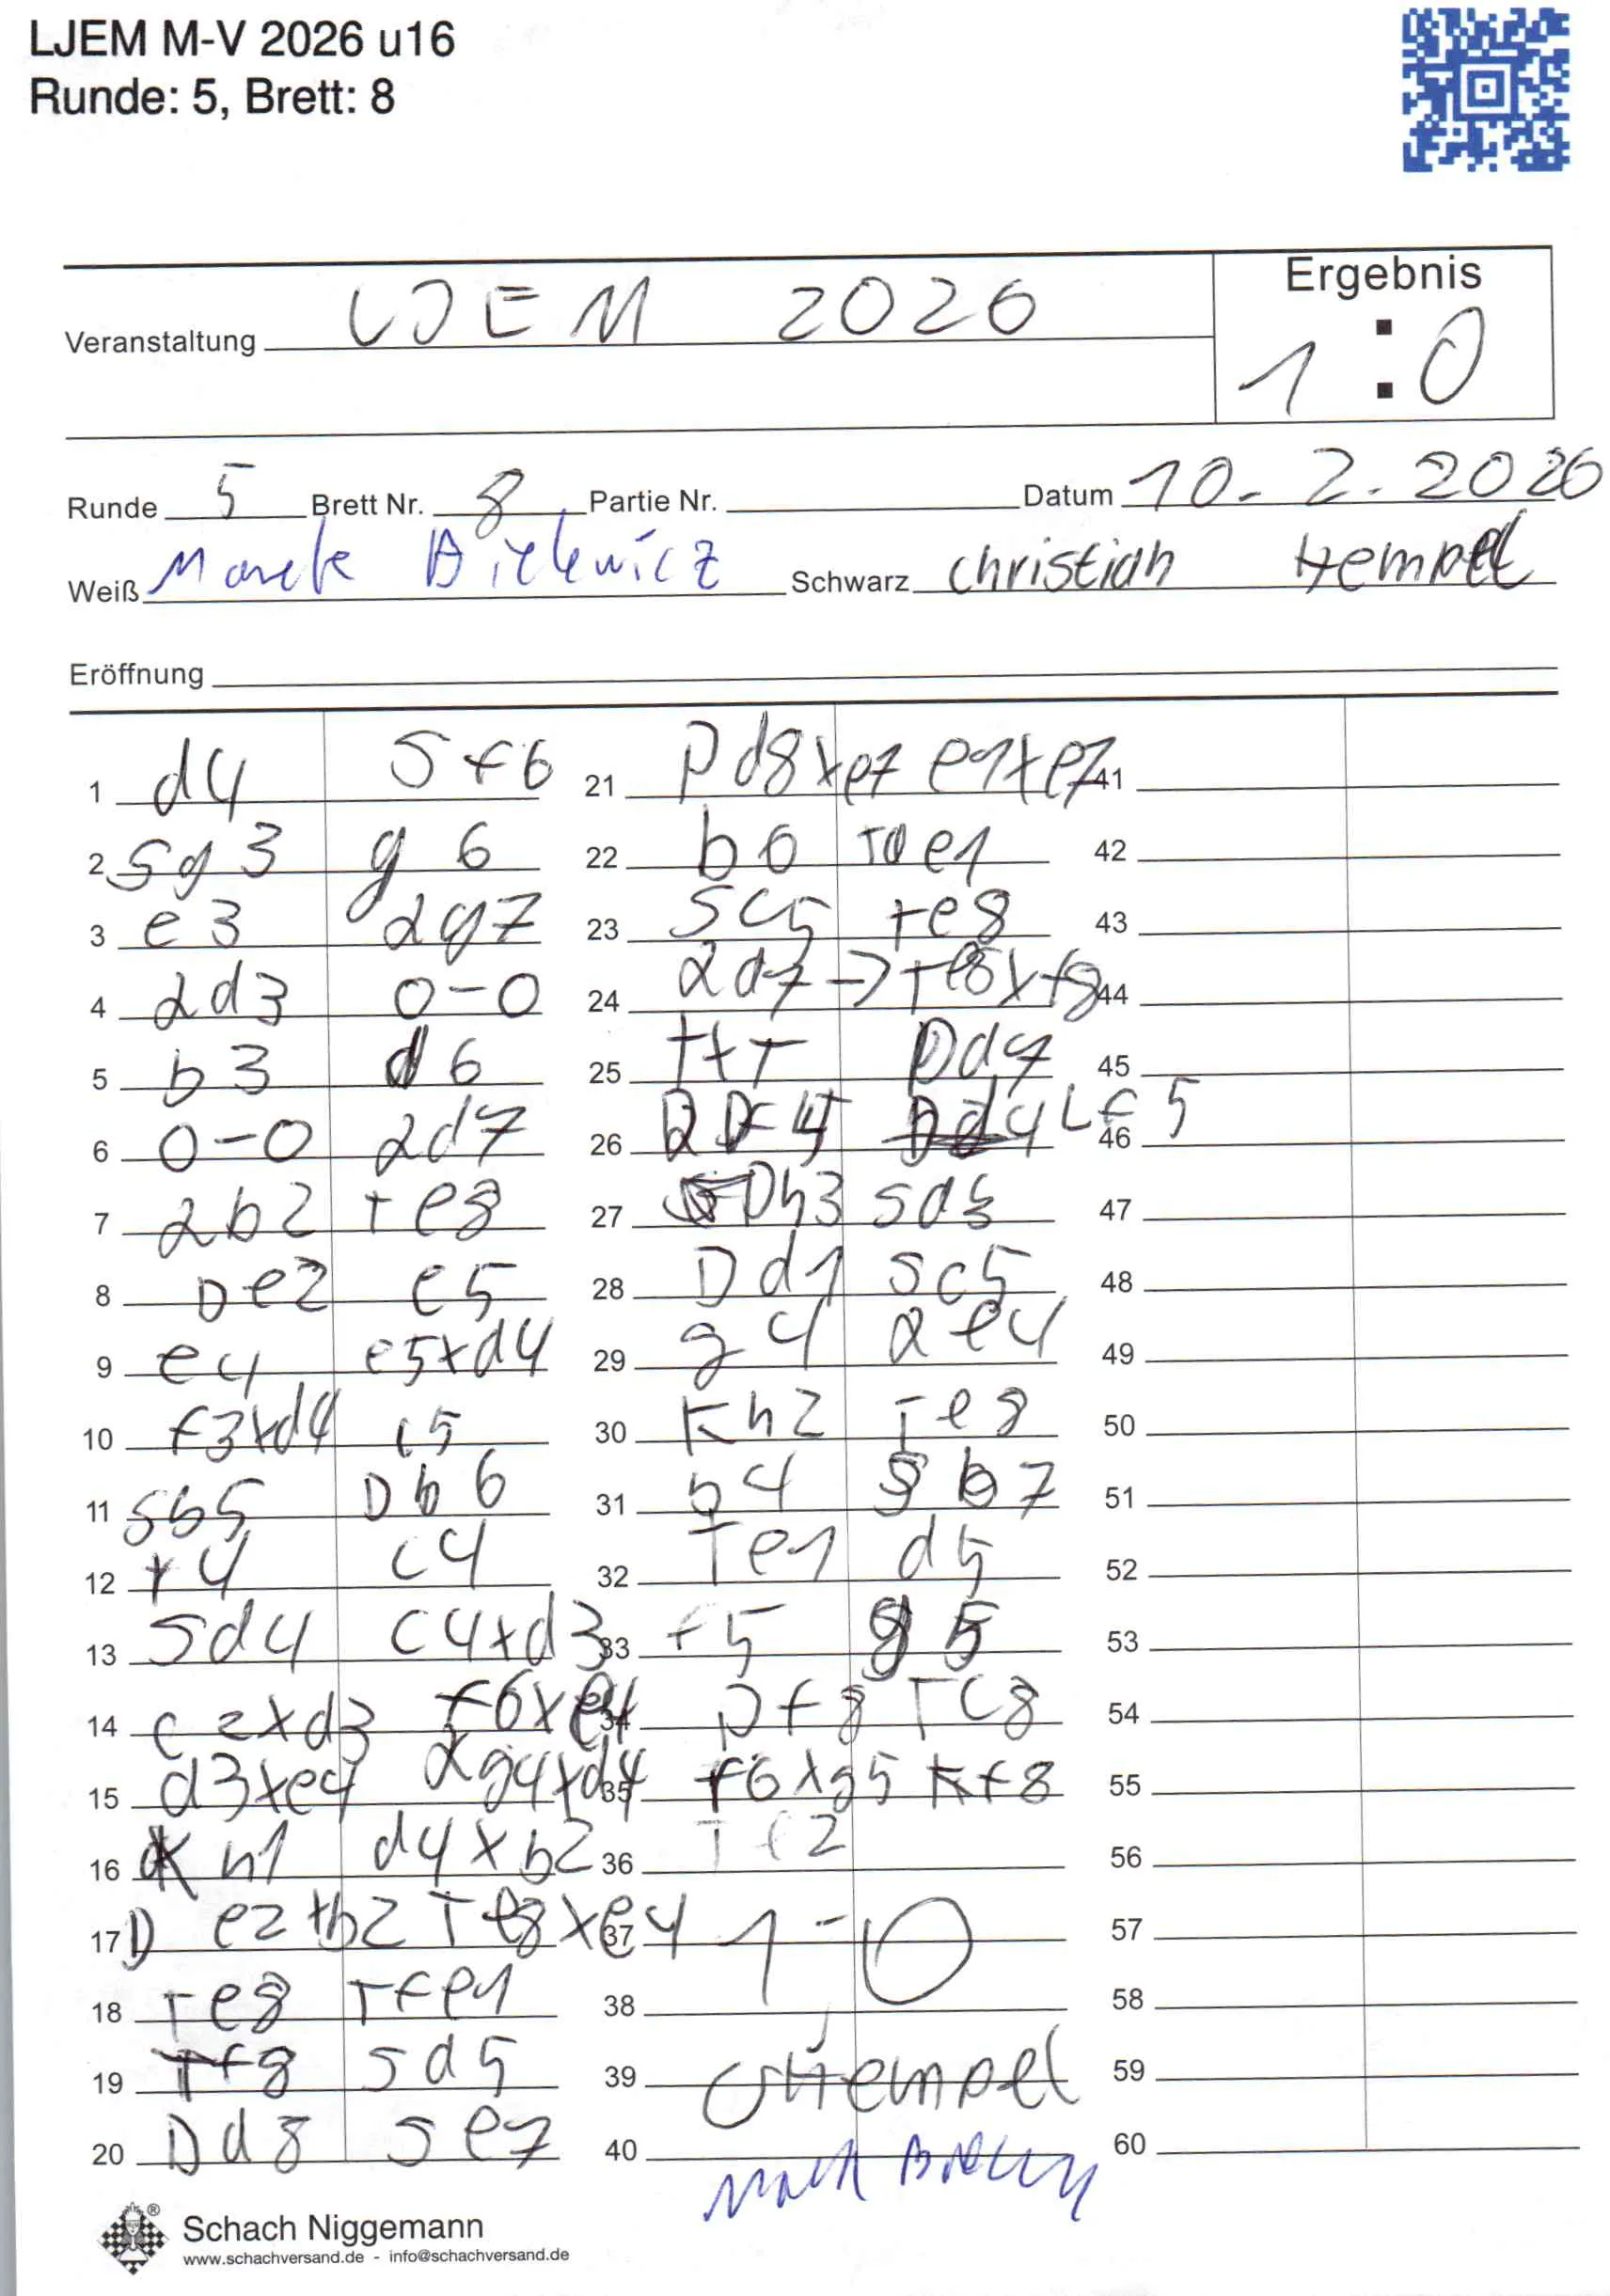 LJEM M-V 2026 u16
Runde: 5, Brett: 8
Veranstaltung LJEM 2026
Ergebnis
1 : 0
Runde 5 Brett Nr. 8 Partie Nr. Datum 10. 2. 2026
Weiß Marek Bielewicz Schwarz Christian Hempel
Eröffnung
1 d4 Sf6
2 Sg3 g6
3 e3 Lg7
4 Ld3 0-0
5 b3 d6
6 0-0 Ld7
7 Lb2 Te8
8 De2 e5
9 e4 e5xd4
10 f3xd4 c5
11 Sb5 Db6
12 f4 c4
13 Sd4 c4xd3
14 c2xd3 f6xe4
15 d3xe4 Lg4xd4
16 Kh1 d4xb2
17 D e2xb2 Te8xe4
18 Te8 Tfe1
19 Tf8 Sd5
20 Dd8 Se7
21 Dd8xe7 e1xe7
22 b6 Te1
23 Sc5 Te8
24 Ld7 -> Te8xf8
25 TxT Dd4
26 Lf5
27 Dh3 Sd3
28 Dd1 Sc5
29 g4 Le4
30 Kh2 Te8
31 b4 Sb7
32 Te1 d5
33 f5 g5
34 Df8 Tc8
35 f6xg5 Kf8
36
37 1-0
38
39 CHempel
40
41
42
43
44
45
46
47
48
49
50
51
52
53
54
55
56
57
58
59
60
Schach Niggemann
www.schachversand.de - info@schachversand.de